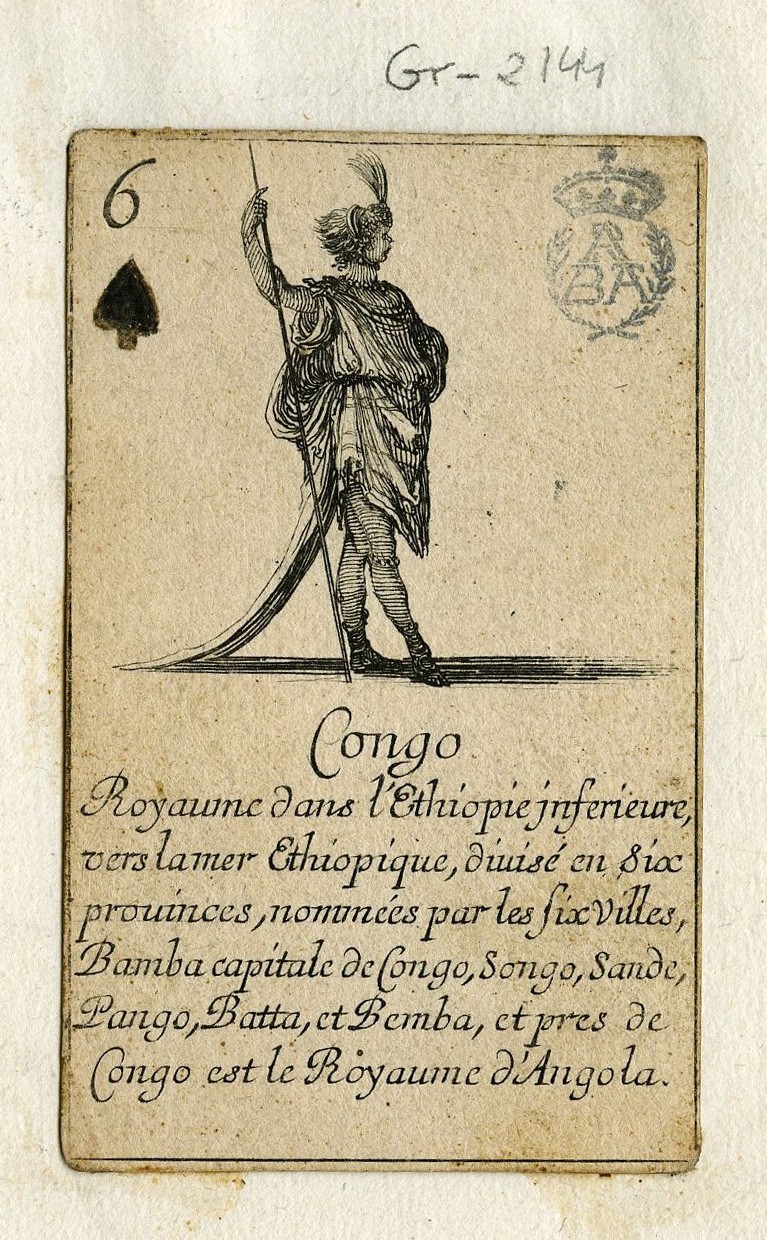 Gr-2144
6
A
BA
Congo
Royaume dans l'Ethiopie jnferieure,
vers la mer Ethiopique, diuisé en six
prouinces, nommées par les six Villes,
Bamba capitale de Congo, Songo, Sande,
Pango, Batta, et Bemba, et pres de
Congo est le Royaume d'Angola.